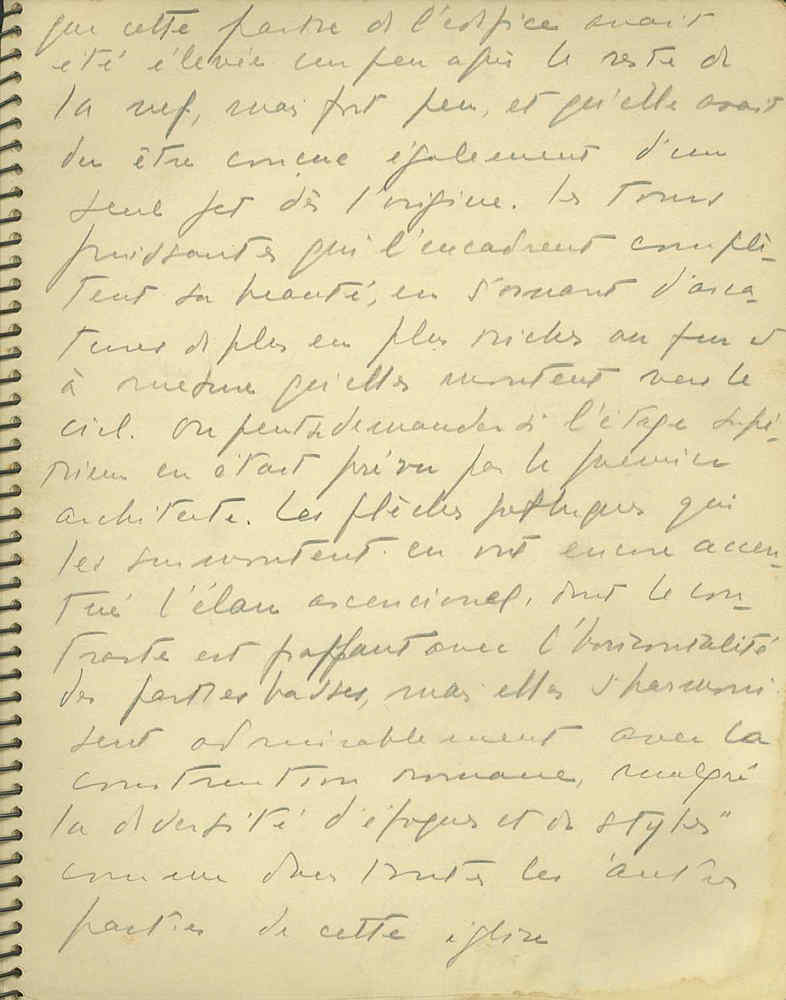 que cette partie de l'édifice avait
été élevée un peu après le reste de
la nef, mais fort peu, et qu'elle avait
du être concue également d'un
seul jet dès l'origine. Les tours
puissantes qui l'encadrent complè-
tent sa beauté, en s'ornant d'arca-
tures de plus en plus riches au fur et
à mesure qu'elles montent vers le
ciel. On peut se demander si l'étage supé-
rieur en était prévu par le premier
architecte. Les flèches gothiques qui
les surmontent en ont encore accen-
tué l'élan ascencionel, dont le con-
traste est frappant avec l'horizontalité
des parties basses, mais elles s'harmoni
sent admirablement avec la
construction romane, malgré
la diversité d'époques et de styles"
comme dans toutes les autres
parties de cette église